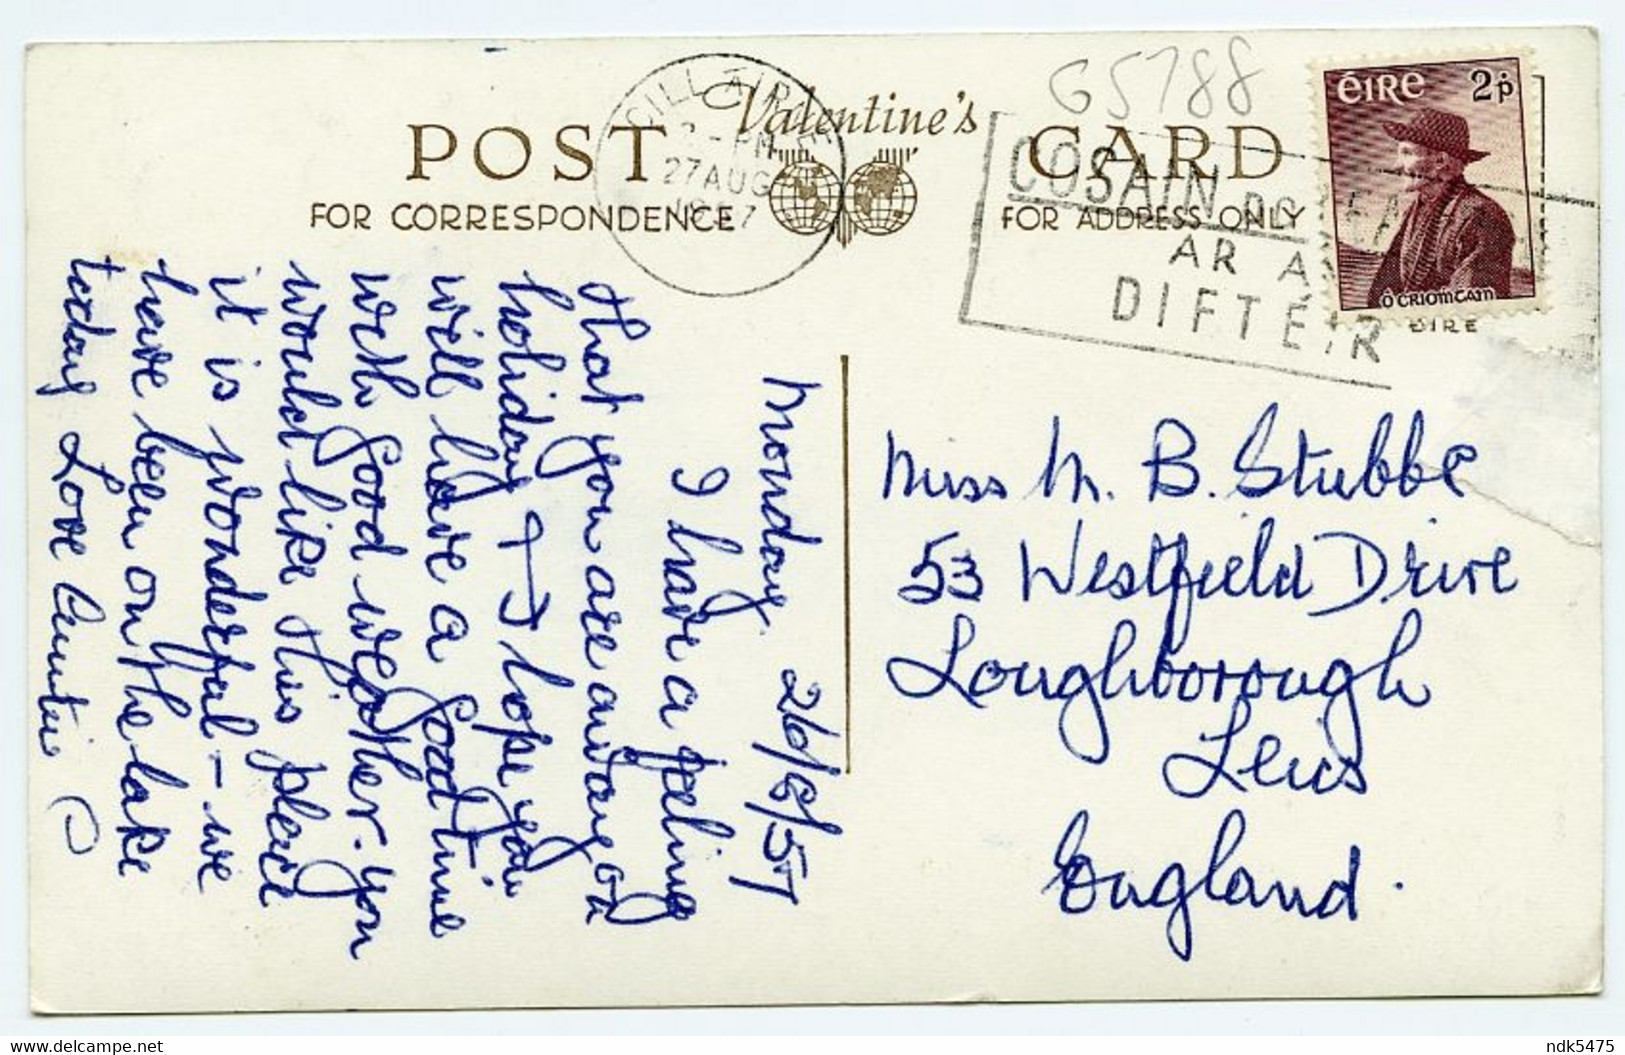 G5788
Valentine's
POST CARD
FOR CORRESPONDENCE
FOR ADDRESS ONLY
CILL ÁIRNE
PM
27 AUG
1957
COSAIN DO
AR A
DIFTÉIR
ÉIRE 2p
Ó CRIOMTAIN
ÉIRE
Monday 26/8/57
I have a feeling
that you are away on
holiday & I hope you
will have a good time
with good weather. You
would like this place
it is wonderful - we
have been on the lake
today Love Auntie
Miss M. B. Stubbs
53 Westfield Drive
Loughborough
Leics
England.
ndk5475